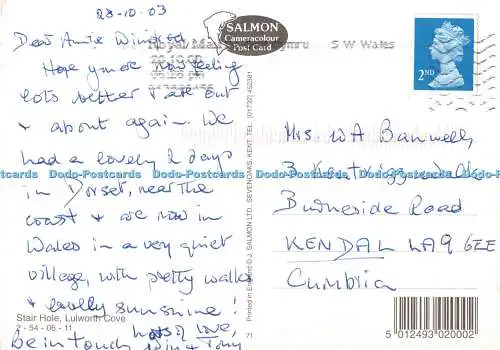 28-10-03
Dear Auntie Winifred
Hope you are now feeling
lots better & are out
& about again. We
had a lovely 2 days
in Dorset, near the
coast & are now in
Wales in a very quiet
village, with pretty walks
& really sunshine!
lots of love,
be in touch Win & Tony
Stair Hole, Lulworth Cove
2 - 54 - 06 - 11
SALMON
Cameracolour
Post Card
Royal Mail
S W Wales
2ND
Printed in England © J. SALMON LTD. SEVENOAKS, KENT. TEL. (01732) 452381
71
Mrs. W A Banwell,
3 Kentrigg Walk
Burneside Road
KENDAL LA9 6EE
Cumbria
5 012493 020002
Dodo-Postcards Dodo-Postcards Dodo-Postcards Dodo-Postcards Dodo-Postcards